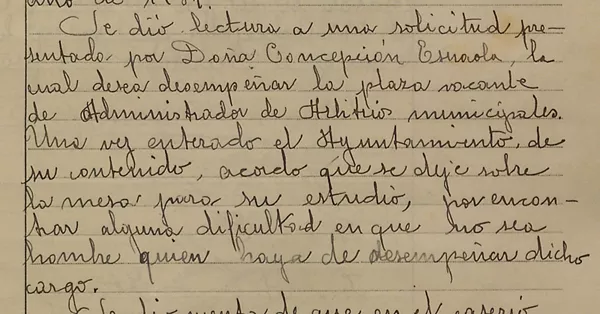 año de 19
Se dió lectura a una solicitud pre-
sentado por Doña Concepción, la
cual desea desempeñar la plaza vacante
de Administrador de Arbitrios municipales.
Una vez enterado el Ayuntamiento, de
su contenido, acordo que se deje sobre
la mesa para su estudio, por encon-
trar alguna dificultad en que no sea
hombre quien haya de desempeñar dicho
cargo.
Se dio cuenta de que en el caserio